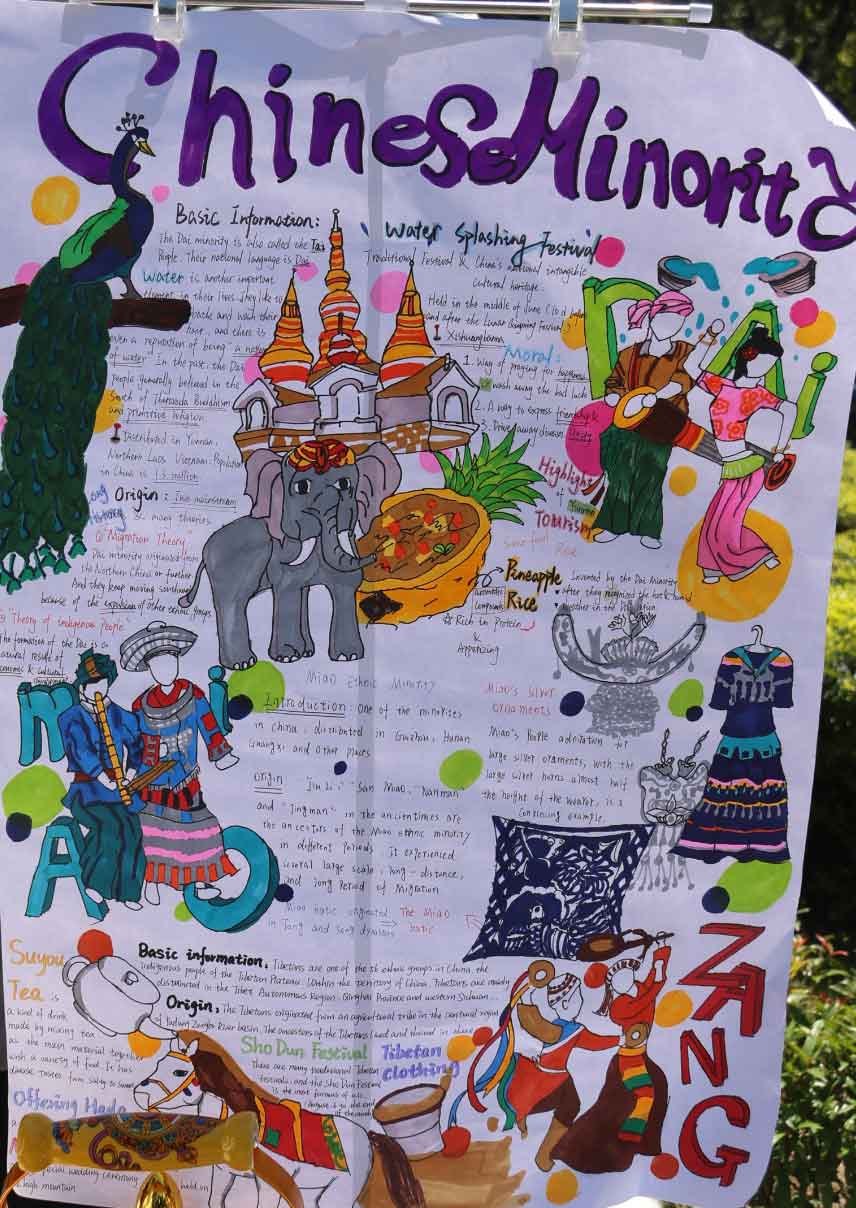 Chinese Minority
Basic Information:
The Dai minority is also called the Tai
People. Their national language is Dai
Water is another important
element in their lives. They like to
and wash their
hair, and there is
even a reputation of being "a nation
of water". In the past, the Dai
people generally believed in the
South of Theravada Buddhism
and primitive religion
Distributed in Yunnan,
Northern Laos, Vietnam. Population
in China is 1.3 million
Long
History
Origin: Two mainstream
& many theories
① "Migration Theory"
Dai minority originated from
the Northern China or further
And they keep moving southward
because of the expulsion of other ethnic groups
② "Theory of indigenous People"
The formation of the Dai is a
natural result of
economic & cultural
Water Splashing Festival
Traditional Festival & China's national intangible
cultural heritage.
Held in the middle of June (10 d before
and after the Lunar Qingming Festival)
Xishuangbanna
Moral:
1. Way of praying for happiness
wash away the bad luck
2. A way to express friendship &
3. Drive away demon,
DAi
Highlight
of Yunnan
Tourism
Pineapple
Rice
invented by the Dai Minority
after they recognized the hot & humid
weather in the
Rich in Protein
&
Appetizing
MiAO
Miao Ethnic Minority
Introduction: One of the minorities
in China, distributed in Guizhou, Hunan
Guangxi and other places
Origin "Jiu Li," "San Miao," "Nanman"
and "Jingman" in the ancient times are
the ancestors of the Miao ethnic minority
in different periods. it experienced
several large scale, long-distance,
and long Period of Migration
Miao batic originated
in Tang and Song dynasties
The Miao
batic
Miao's Silver
ornaments
Miao's People admiration for
large silver oraments, with the
large silver horns almost half
the height of the wearer, is a
convincing example.
ZANG
Suyou
Tea is
a kind of drink
made by mixing tea
as the main material together
with a variety of food. It has
diverse tastes from salty to sweet
Offering Hada
Basic information: Tibetans are one of the 56 ethnic groups in China, the
indigenous people of the Tibetan Plateau. Within the territory of China, Tibetans are mainly
distributed in the Tibet Autonomous Region, Qinghai Province and western Sichuan...
Origin: The Tibetans originated from an agricultural tribe in the central region
of Yarlung Zangbo River basin. The ancestors of the Tibetans lived and thrived in
Sho Dun Festival
There are many traditional Tibetan
festivals, and the Sho Dun Festival
is the most famous of all.
Tibetan
clothing
special wedding ceremony
held in
high mountain